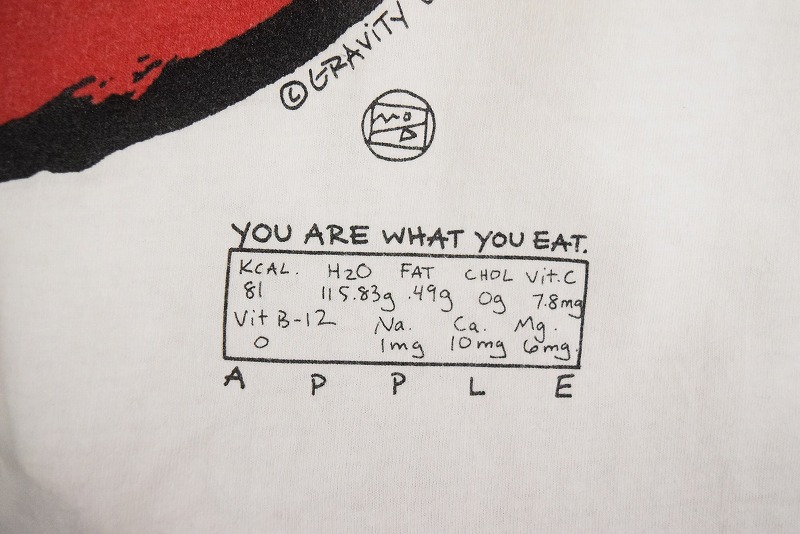 © GRAVITY
YOU ARE WHAT YOU EAT.
KCAL. H2O FAT CHOL Vit.C
81 115.83g .49g 0g 7.8mg
Vit B-12 Na. Ca. Mg.
0 1mg 10mg 6mg
A P P L E